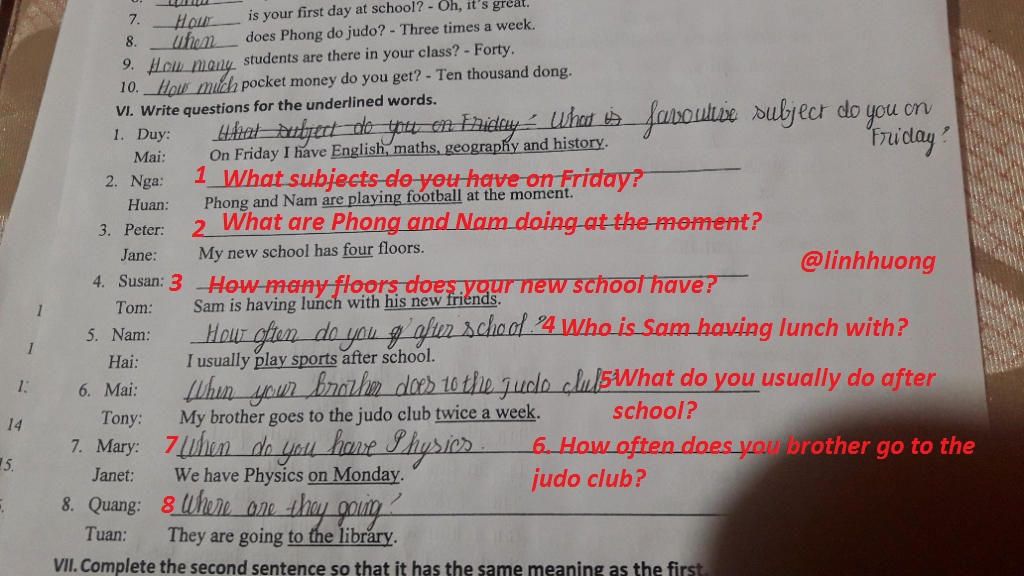 7. How is your first day at school? - Oh, it's great.
8. When does Phong do judo? - Three times a week.
9. How many students are there in your class? - Forty.
10. How much pocket money do you get? - Ten thousand dong.
VI. Write questions for the underlined words.
1. Duy: What subject do you on Friday? What is favourise subject do you on
Friday?
Mai: On Friday I have English, maths, geography and history.
2. Nga: 1 What subjects do you have on Friday?
Huan: Phong and Nam are playing football at the moment.
3. Peter: 2 What are Phong and Nam doing at the moment?
Jane: My new school has four floors.
@linhhuong
4. Susan: 3 How many floors does your new school have?
1 Tom: Sam is having lunch with his new friends.
5. Nam: How often do you after school? 4 Who is Sam having lunch with?
1 Hai: I usually play sports after school.
1. 6. Mai: When your brother does to the judo club 5 What do you usually do after
school?
14 Tony: My brother goes to the judo club twice a week.
7. Mary: 7 When do you have Physics. 6. How often does you brother go to the
judo club?
15. Janet: We have Physics on Monday.
8. Quang: 8 Where are they going?
Tuan: They are going to the library.
VII. Complete the second sentence so that it has the same meaning as the first.